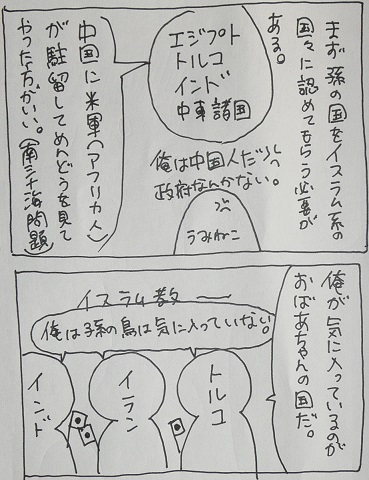 まず孫の国をイスラム系の
国々に認めてもらう必要が
ある。
エジプト
トルコ
インド
中東諸国
中国に米軍(アフリカ人)
が駐留してめんどうを見て
やった方がいい。(南シナ海問題)
俺は中国人だ
政府なんかない。
うみねこ
俺が気に入っているのが
おばあちゃんの国だ。
イスラム教
俺は孫の鳥は気に入っていない。
トルコ
イラン
インド